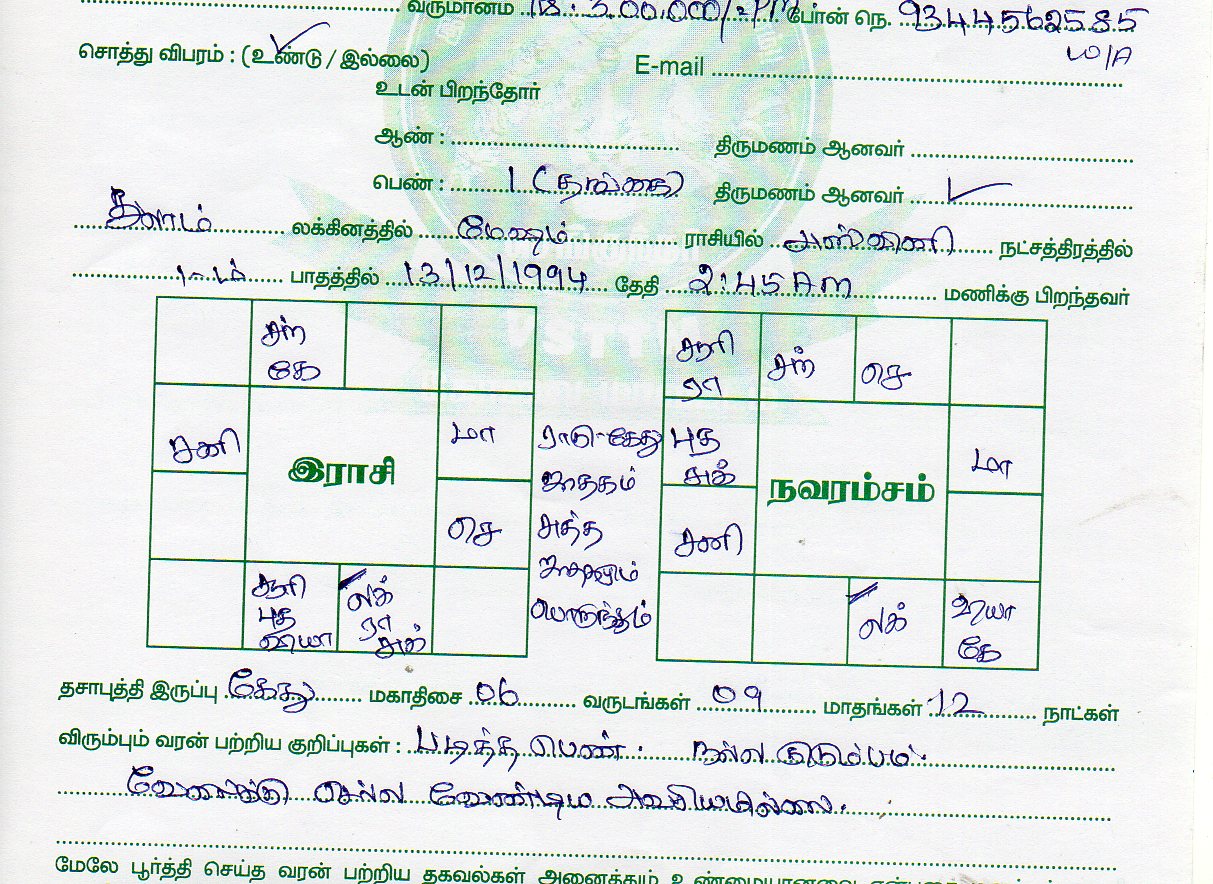 வருமானம் 3,00,000/- போன் நெ. 9344562585
W/A
சொத்து விபரம் : (உண்டு / இல்லை) E-mail
உடன் பிறந்தோர்
ஆண் : திருமணம் ஆனவர்
பெண் : 1 (தங்கை) திருமணம் ஆனவர் ✓
துலாம் லக்கினத்தில் மேஷம் ராசியில் அஸ்வினி நட்சத்திரத்தில்
1-ம் பாதத்தில் 13/12/1994 தேதி 2:45 Am மணிக்கு பிறந்தவர்
சந் சூரி சந் செ
கே ரா
சனி மா ராகு-கேது புத மா
இராசி ஜாதகம் சுக் நவாம்சம்
செ சுத்த சனி
சூரி லக் லக் வியா
புத ரா பொருந்தும் கே
வியா சுக்
தசாபுத்தி இருப்பு கேது மகாதிசை 06 வருடங்கள் 09 மாதங்கள் 12 நாட்கள்
விரும்பும் வரன் பற்றிய குறிப்புகள் : படித்த பெண். நல்ல குடும்பம்.
வேலைக்கு செல்ல வேண்டிய அவசியமில்லை.
மேலே பூர்த்தி செய்த வரன் பற்றிய தகவல்கள் அனைத்தும் உண்மையானவை என்பதை